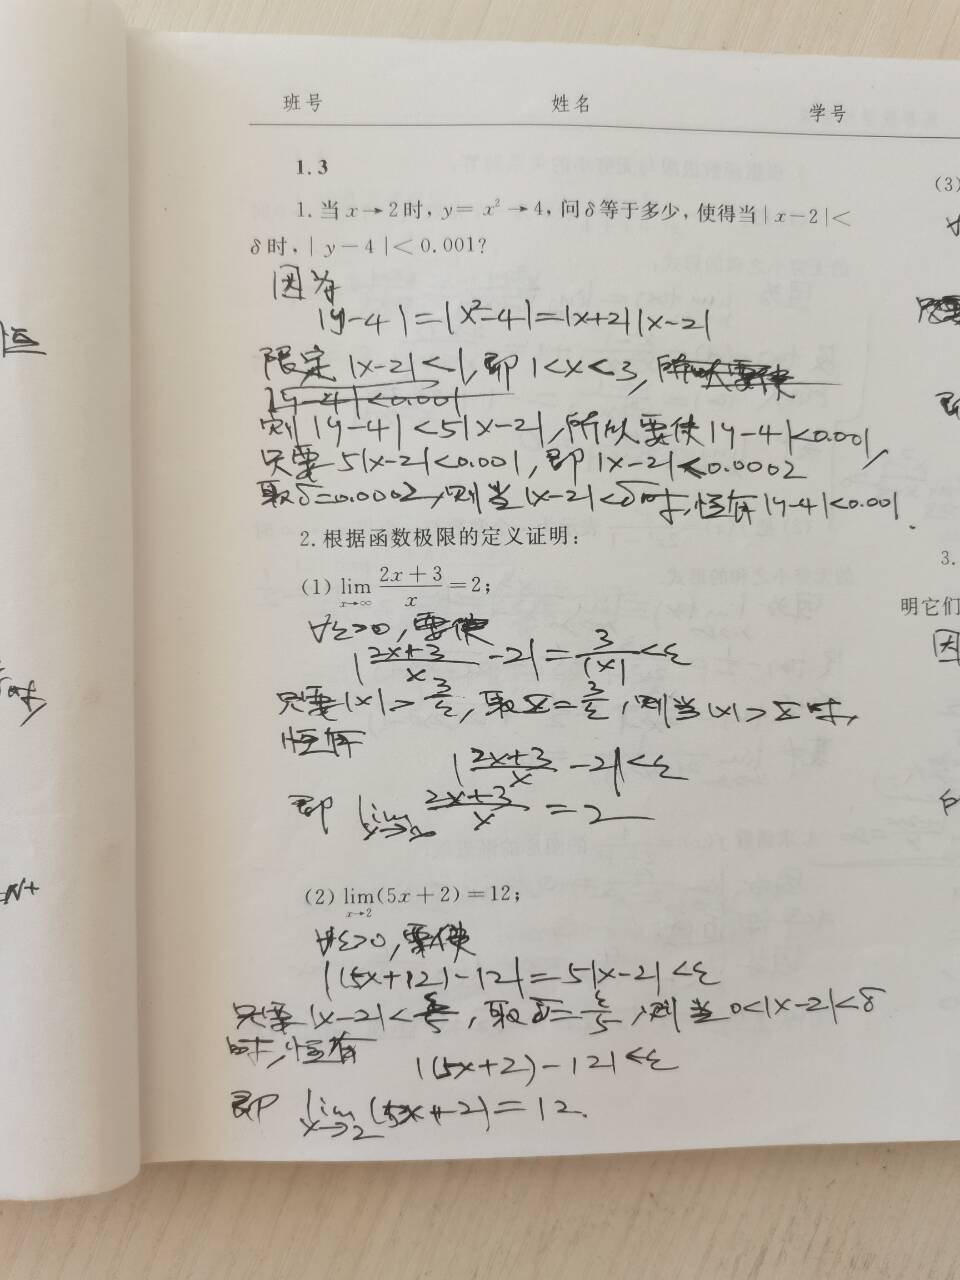 班号 姓名 学号
1.3
1. 当 x→2 时, y= x²→4, 问 δ 等于多少, 使得当 |x-2|<
δ 时, |y-4|<0.001?
因为
|y-4|=|x²-4|=|x+2||x-2|
限定 |x-2|<1, 即 1<x<3, 所以要使
|y-4|<0.001
则 |y-4|<5|x-2|, 所以要使|y-4|<0.001,
只要 5|x-2|<0.001, 即 |x-2|<0.0002
取δ=0.0002, 则当 |x-2|<δ时, 恒有|y-4|<0.001.
2. 根据函数极限的定义证明:
(1) lim_{x→∞} (2x+3)/x = 2;
∀ε>0, 要使
|(2x+3)/x -2|=3/|x|<ε
只要|x|>3/ε, 取X=3/ε, 则当|x|>X时,
恒有
|(2x+3)/x -2|<ε
即 lim_{x→∞} (2x+3)/x =2
(2) lim_{x→2}(5x+2)=12;
∀ε>0, 要使
|(5x+12)-12|=5|x-2|<ε
只要|x-2|<ε/5, 取δ=ε/5, 则当0<|x-2|<δ
时, 恒有
|(5x+2)-12|<ε
即 lim_{x→2}(5x+2)=12.
(3)
只要
即
3.
明它们
因
恒
时,
N+